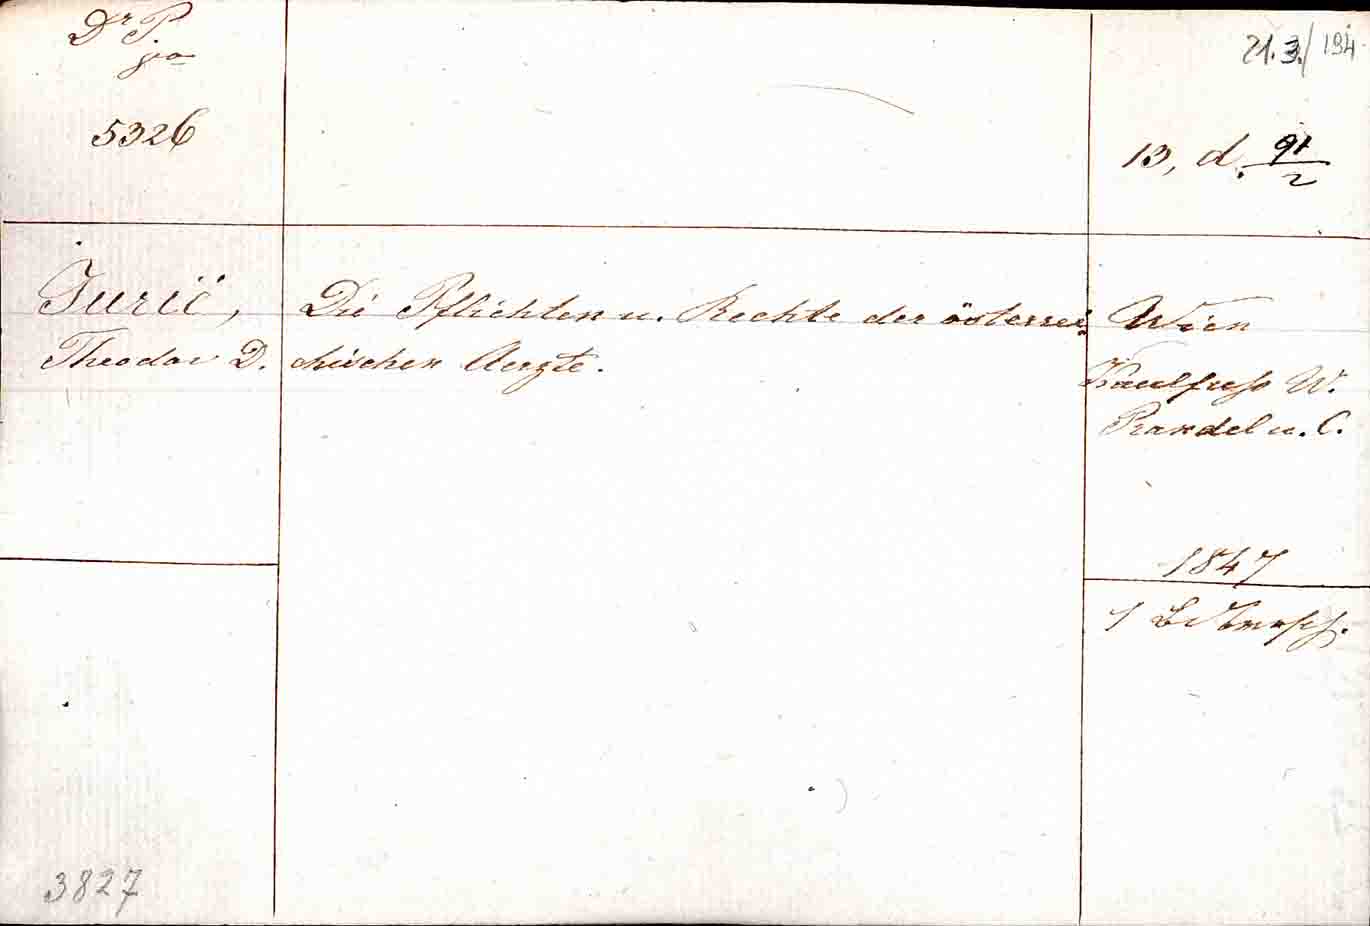 Dr P.
5326
21.3./194
13, d. 91/2
Jurić,
Theodor D.
Die Pflichten u. Rechte der österrei-
chischen Aerzte.
Wien
Kaulfuss W.
Prandel u. C.
1847
1 Bd
3827